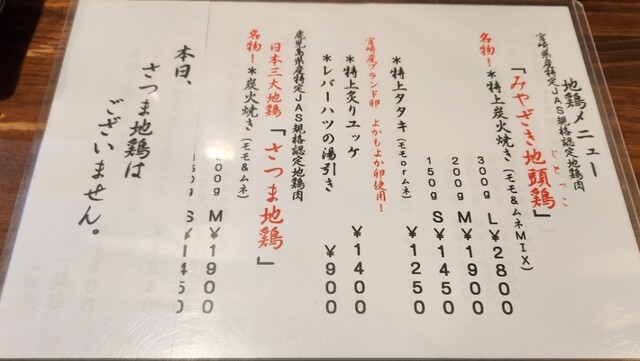 地鶏メニュー
宮崎県産特定JAS規格認定地鶏肉
「みやざき地頭鶏」
じとっこ
名物！＊特上炭火焼き（モモ&ムネMIX）
300g L￥2800
200g M￥1900
150g S￥1450
＊特上タタキ（モモorムネ）￥1250
宮崎産ブランド卵 よかもよか卵使用！
＊特上炙りユッケ ￥1400
＊レバーハツの湯引き ￥900
鹿児島県産特定JAS規格認定地鶏肉
日本三大地鶏「さつま地鶏」
名物！＊炭火焼き（モモ&ムネ）
200g M￥1900
150g S￥1450
本日、
さつま地鶏は
ございません。